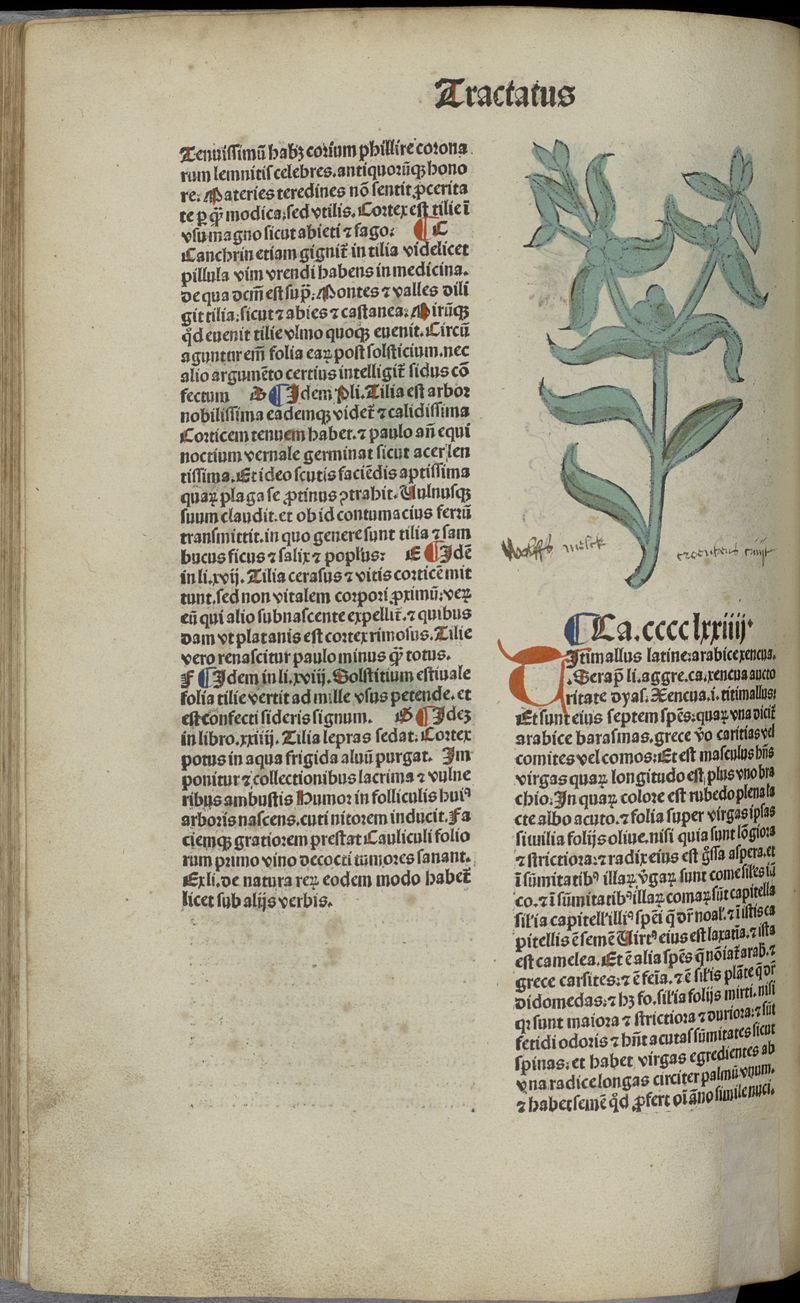 Tractatus
Tenuissimū habꝫ corium phillire corona
rum lemnitis celebres. antiquorūqꝫ hono
re. Materies teredines nō sentit ꝓcerita
te ꝑ qꝫ̄ modica: sed vtilis. Cortex est tilie ī
vsu magno sicut abieti ⁊ fago: ¶ C
Canchrin etiam gignit̄ in tilia videlicet
pillula vim vrendi habens in medicina.
de qua dcm̄ est sup̄. Montes ⁊ valles dili
git tilia. sicut ⁊ abies ⁊ castanea. Mirūqꝫ
qd̄ euenit tilie vlmo quoqꝫ euenit. Circū
aguntur em̄ folia eaꝝ post solsticium. nec
alio argumēto certius intelligit̄ sidus cō
fectum D ¶ Idem Pli. Tilia est arbor
nobilissima eademqꝫ videt̄ ⁊ calidissima
Corticem tenuem habet. ⁊ paulo an̄ equi
noctium vernale germinat sicut acer len
tissima. Et ideo scutis faciēdis aptissima
quaꝝ plaga se ꝓtinus ꝯtrabit. Uulnusqꝫ
suum claudit. et ob id contumacius ferrū
transmittit. in quo genere sunt tilia ⁊ sam
bucus ficus ⁊ salix ⁊ poplus: E ¶ Idē
in li. xvij. Tilia cerasus ⁊ vitis corticē mit
tunt. sed non vitalem corpori ꝓximū: veꝝ
eū qui alio subnascente expellit̄. ⁊ quibus
dam vt platanis est cortex rimosus. Tilie
vero renascitur paulo minus qꝫ̄ totus.
F ¶ Idem in li. xviij. Solstitium estiuale
folia tilie vertit ad mille vsus petende. et
est confecti sideris signum. G ¶ Ideꝫ
in libro. xxiiij. Tilia lepras sedat. Cortex
potus in aqua frigida aluū purgat. Im
ponitur ⁊ collectionibus lacrima ⁊ vulne
ribus ambustis Humor in folliculis huiꝰ
arboris nascens. cuti nitorem inducit. Fa
ciemqꝫ gratiorem prestat Cauliculi folio
rum primo vino decocti tumores sanant.
Ex li. de natura reꝝ eodem modo habet̄
licet sub alijs verbis.
¶ Ca. cccc lxxiiij.
TItimallus latine: arabice xencua.
Serap̄ li. aggre. ca. xencua aucto
ritate dyas. Xencua. i. titimallus:
Et sunt eius septem spēs: quaꝝ vna dicit̄
arabice barasinas. grece v̄o caritias vel
comites vel comos: Et est masculus hn̄s
virgas quaꝝ longitudo est plus vno bra
chio. In quaꝝ colore est rubedo plena la
cte albo acuto. ⁊ folia super virgas ipsas
similia folijs oliue. nisi quia sunt lōgiora
⁊ strictiora: ⁊ radix eius est g̊ssa aspera. et
ī sūmitatibꝰ illaꝝ v̄gaꝝ sunt come siles iū
co. ⁊ ī sūmitatibꝰ illaꝝ comaꝝ sūt capitella
sil̄ia capitell̄ illiꝰ spēi q̄ dr̄ noal̄. ⁊ ī istis ca
pitellis ē semē Uirtꝰ eius est laxatīa. ⁊ ista
est camelea. Et ē alia spēs q̄ nōiat̄ arab̄. ⁊
grece carsites: ⁊ ē feīa. ⁊ ē sil̄is plāte q̄ dr̄
didomedas: ⁊ hꝫ fo. sil̄ia folijs mirti. nisi
qꝛ sunt maiora ⁊ strictiora ⁊ duriora: ⁊ sūt
fetidi odoris ⁊ hn̄t acutas sūmitates sicut
spinas: et habet virgas egredientes ab
vna radice longas circiter palmū vnum.
⁊ habet semē qd̄ ꝓfert oī āno simile nuci.